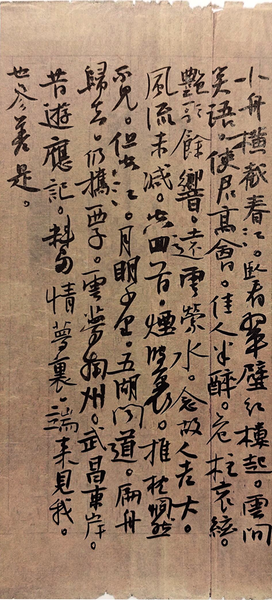 小舟橫截春江。臥看翠壁紅樓起。雲間
笑語。使君高會。佳人半醉。危柱哀絃。
艷歌餘響。遶雲縈水。念故人老大。
風流未減。空回首。煙波裏。推枕惘然
不見。但空江。月明千里。五湖聞道。扁舟
歸去。仍攜西子。雲夢南州。武昌東岸。
昔遊應記。料多情夢裏。端來見我。
也參差是。